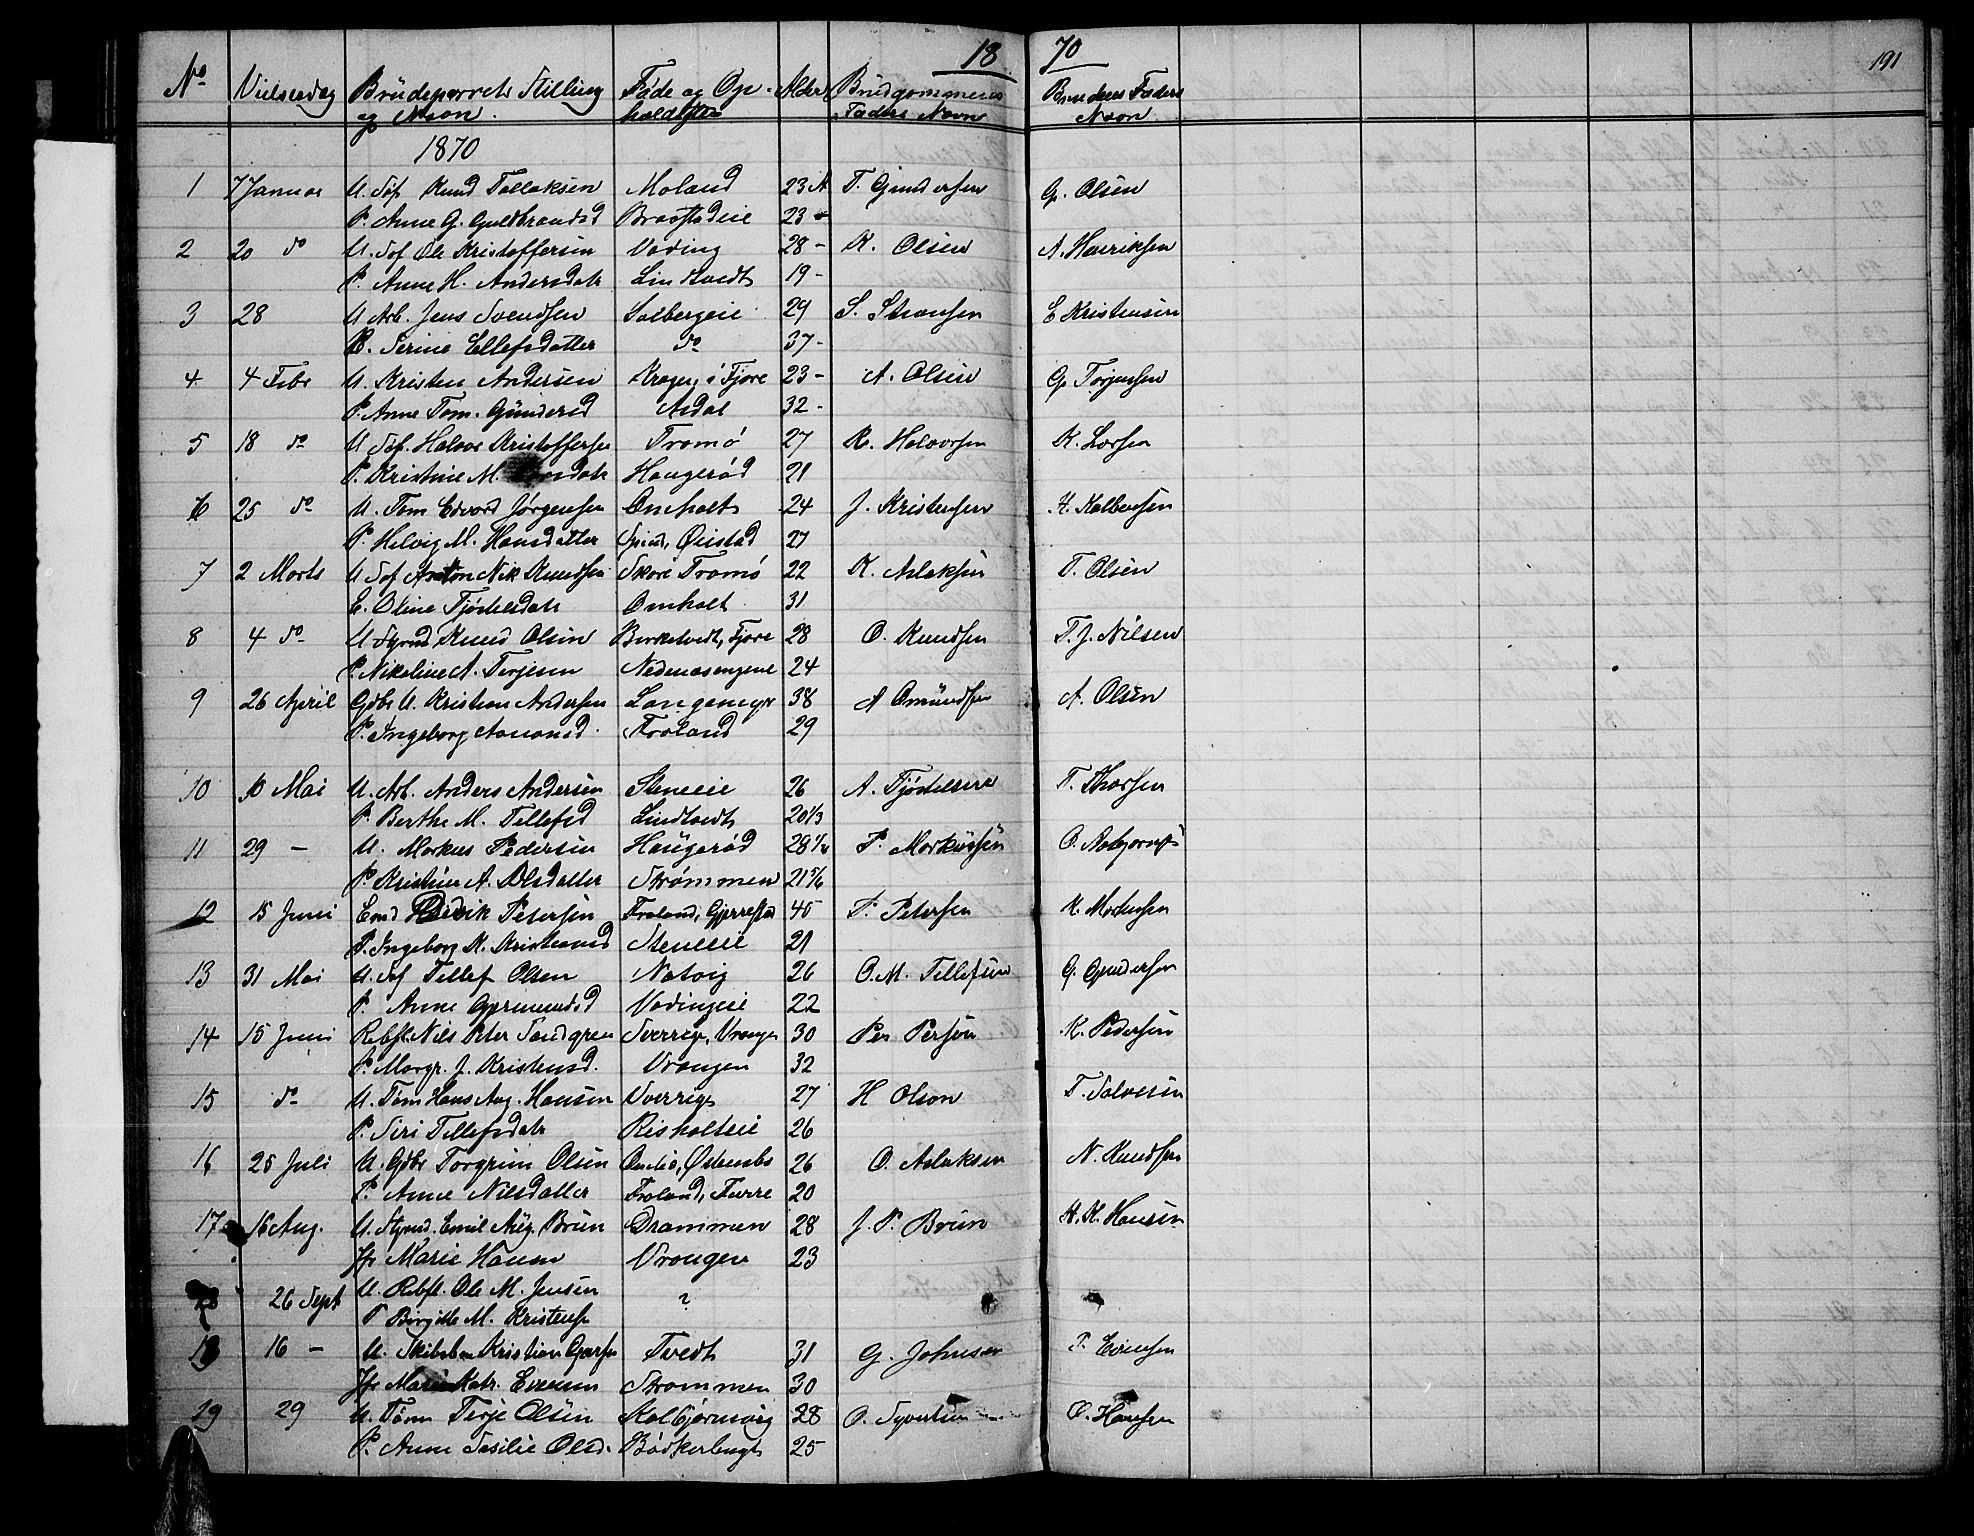 18 70
191
No Vielsesdag Brudeparrets Stilling Føde og Op- Alder Brudgommens Brudens Faders
og Navn. holdssted Faders Navn Navn
1870
1 7 Januar U. Søf Knud Tallaksen Moland 23 A T. Gundersen G. Olsen
P. Anne G. Guldbrandsd Brastadeie 23
2 20 do U. Søf Ole Kristoffersen Vading 28 - K. Olsen A. Henriksen
P. Anne H. Andersdatr Lindtvedt 19 -
3 28 U Arb. Jens Svendsen Salbergeie 29 S. E Kristensen
P. Serine Ellefsdatter do 37 -
4 4 Febr U. Kristen Andersen i Fjære 23 - A. Olsen G. Torjensen
P. Anne Tom. Gundersd Asdal 32 -
5 18 do U Søf. Halvor Kristoffersen Tromø 27 K. Halvorsen K. Larsen
P. Kristine M. Larsdatr Haugerød 21
6 25 do U. Tøm Edvard Jørgensen Omholt 24 J. Kristensen H. Kalbersen
P. Helvig M. Hansdatter Spind, Øiestad 27
7 2 Marts U Søf Anton Nik Knudsen Skare Tromø 22 K. Aslaksen T. Olsen
E. Oline Fjøstelsdatr Omholt 31
8 4 do U Styrmd Knud Olsen Birketvedt, Fjære 28 O. Knudsen T. J. Nilsen
P. Nikoline A. Terjesen Nedenæsengene 24
9 26 April Gdbr U. Kristian Andersen Langemyr 38 A Omundsen A. Olsen
P. Ingeborg Aanonsd. Froland 29
10 10 Mai U. Arb. Anders Andersen Steneeie 26 A. Fjøstelsen T. Thorsen
P. Berthe M. Tellefsd Lindtvedt 20 1/3
11 29 - U. Markus Pedersen Haugerød 28 1/4 P. Markussen O.
P. Kristine A. Olsdatter Strømmen 21 5/6
12 15 Juni Emd Petersen Froland, Gjerrestad 45 P. Petersen K. Mortensen
P. Ingeborg K. Kristiansd Steneeie 21
13 31 Mai U. Søf Tellef Olsen Natvig 26 O. M. Tellefsen G. Gundersen
P. Anne Gjermundsd Vadingeie 22
14 15 Juni Rebsl. Nils Peter Sandgren Sverrige, Vrangen 30 Per Person K. Pedersen
P. Margr. J. Kristensd. Vrangen 32
15 do U. Tøm Hans Aug. Hansen Sverrige 27 H Olson T. Salvesen
P. Siri Tellefsdatr Risholteie 26
16 25 Juli U. Gdbr Torgrim Olsen Østensbø 26 O. Aslaksen N. Knudsen
P. Anne Nilsdatter Froland, Furre 20
17 16 Aug. U. Styrmd. Emil Aug. Brun Drammen 28 J. P. Brun H. K. Hansen
Jfr Marie Hansen Vrangen 23
18 26 Sept U. Rebsl. Ole M. Jensen ?
P Birgitte M. Kristense
18 16 - U. Skibsbm Kristian Tvedt 31 G. Johnsen P. Evensen
Jfr Maren Katr. Evensen Strømmen 30
19 29 U. Tøm Terje Olsen Kalbjørnsvig 28 O. Syvertsen O. Hansen
P. Anne Sesilie Olsd. Bødkerbugt 25